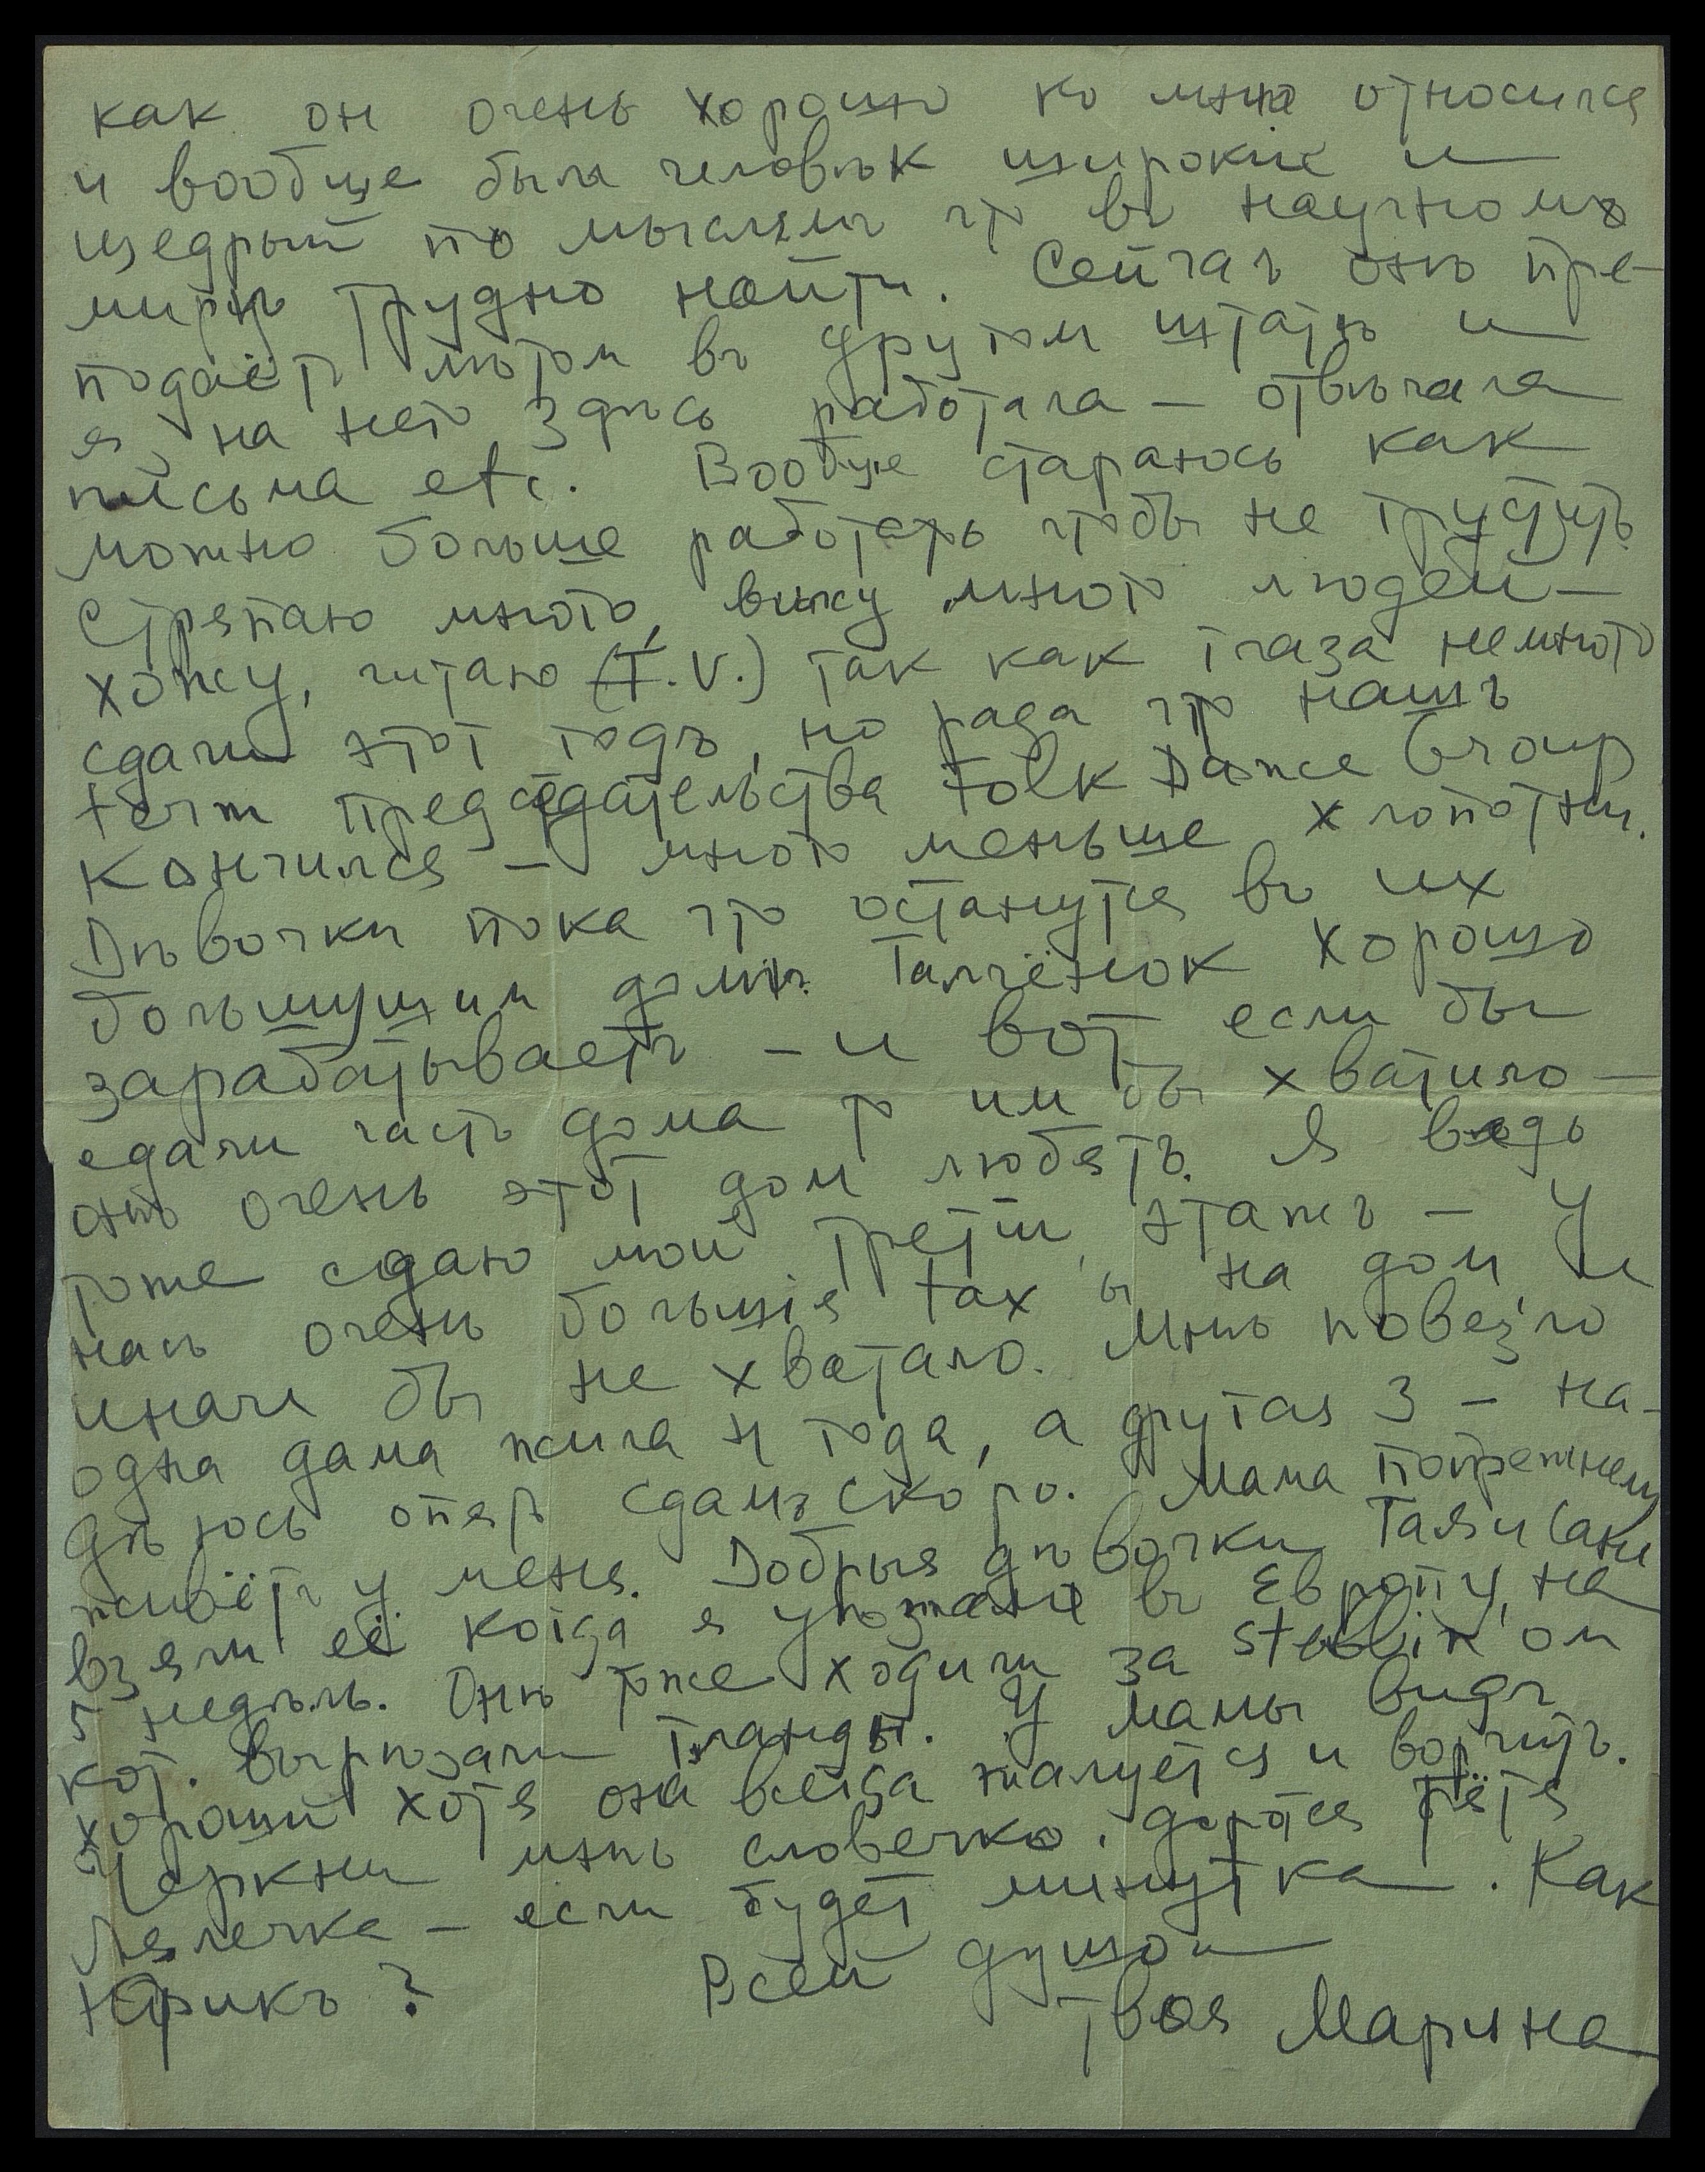 как он очень хорошо ко мнѣ относился
и вообще былъ человѣк широкiй и
щедрый по мыслямъ что въ научномъ
мирѣ трудно найти. Сейчас онъ пре-
подаётъ лѣтом въ другом штатѣ и
я на него здѣсь работала – отвѣчала
письма etc. Вообще стараюсь как
можно больше работать чтобы не грустить.
Стряпаю много, вижу много людей –
хожу, читаю (T.V.) так как глаза немного
сдали этот годъ, но рада что нашъ
term председательства Folk Dance Group
кончился – много меньше хлопотни.
Дѣвочки пока что останутся въ их
большущим домѣ. Галчёнок хорошо
зарабатываетъ – и вот если бы
сдали часть дома то им бы хватило –
онѣ очень этот дом любятъ. Я ведь
тоже сдаю мой третiй этажъ – У
насъ очень большiя tax'ы на дом и
иначе бы не хватало. Мнѣ повезло
одна дама жила 4 года, а другая 3 – на-
дѣюсь опять сдамъ скоро. Мама попрежнему
живётъ у меня. Добрыя дѣвочки Галя и Саня
взяли её когда я уѣзжала въ Европу, на
5 недѣль. Онѣ тоже ходили за Steblin'ом
кот. вырѣзали гланды. У мамы видъ
хорошiй хотя она всегда жалуется и ворчитъ.
Черкни мнѣ словечко, дорогая тётя
Лялечка – если будет минутка. Как
Юрикъ? Всей душой
твоя Марина